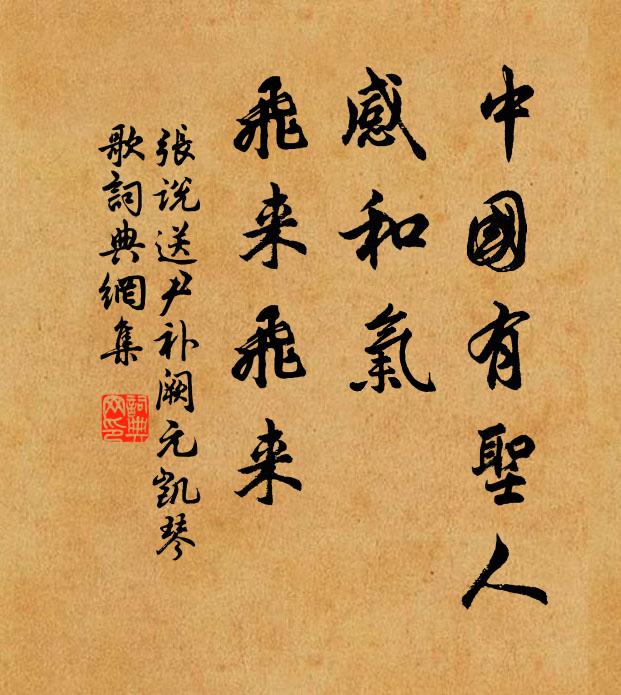 中國有聖人
感和氣
飛来飛来
張说送尹补阙元凯琴
歌詞典網集
詞典網印